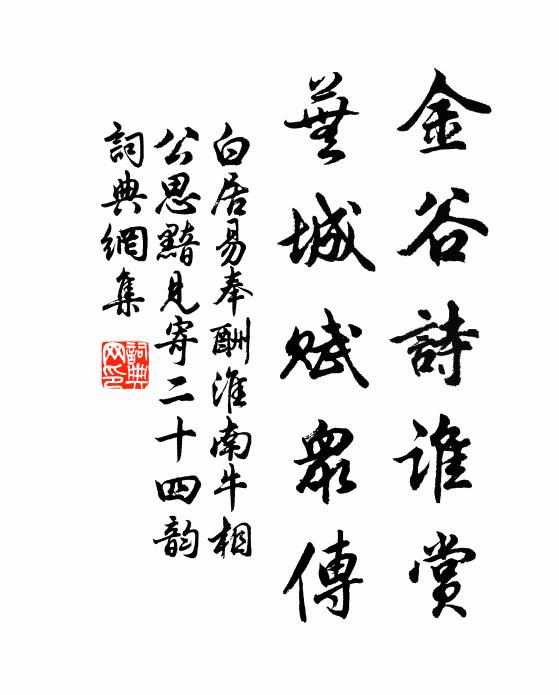 金谷詩誰賞
蕪城賦眾傳
白居易奉酬淮南牛相
公思黯見寄二十四韵
詞典網集
詞典
网印